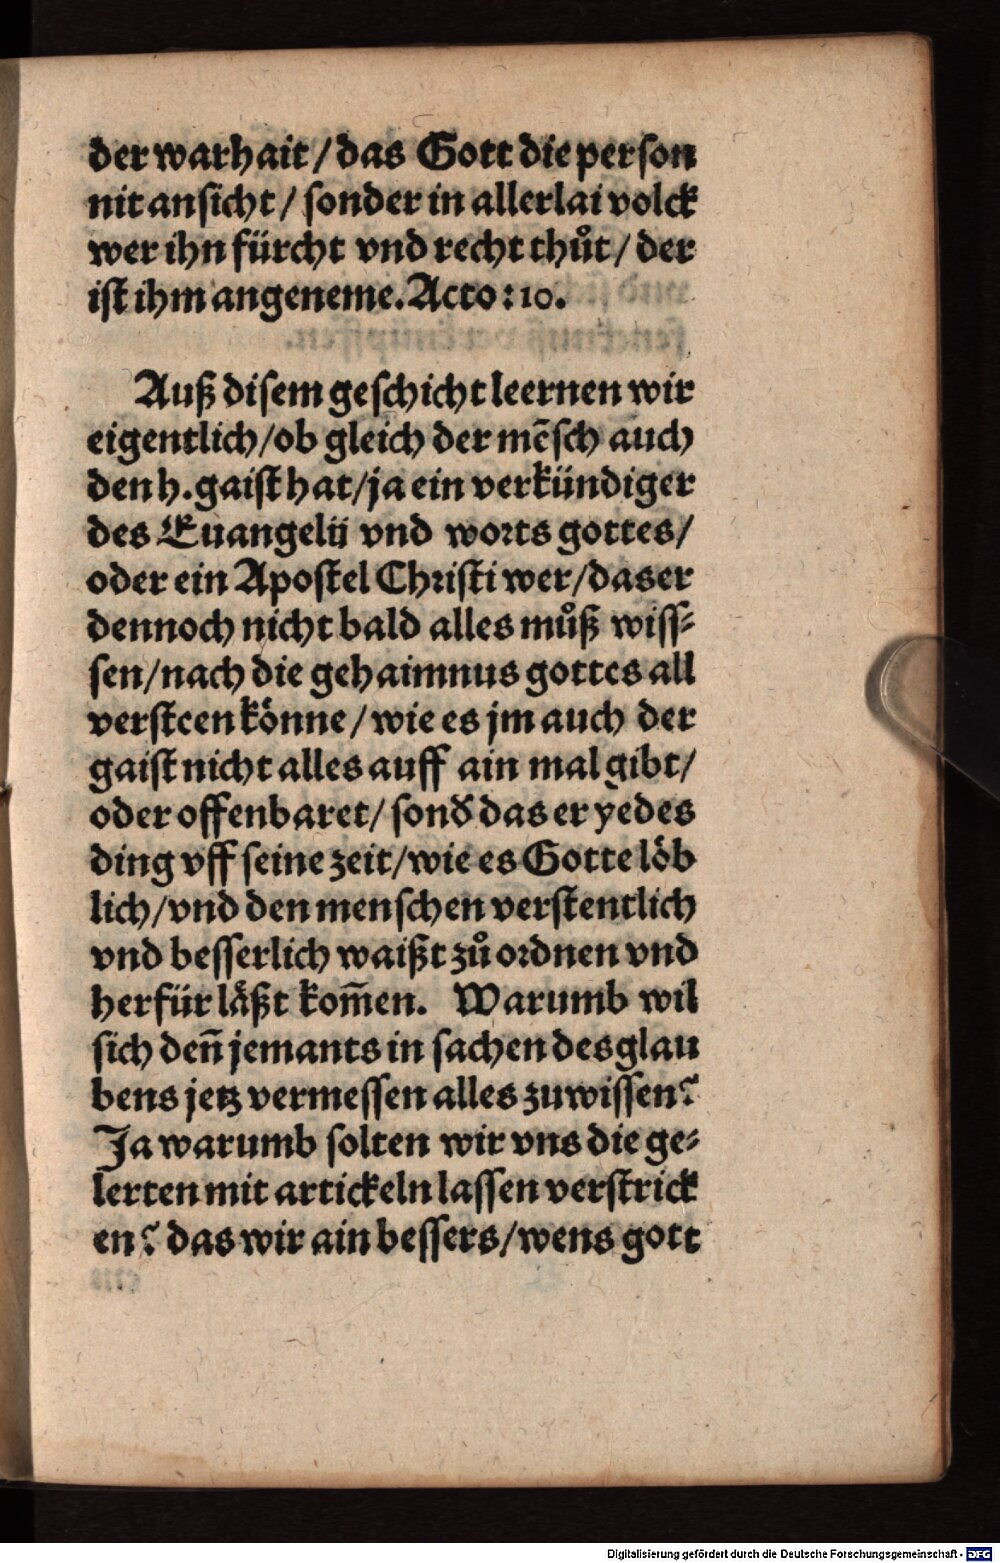 der warhait / das Gott die person
nit ansicht / sonder in allerlai volck
wer ihn fürcht vnd recht thůt / der
ist ihm angeneme. Acto: 10.
Auß disem geschicht leernen wir
eigentlich / ob gleich der mēsch auch
den h. gaist hat / ja ein verkündiger
des Euangelij vnd worts gottes /
oder ein Apostel Christi wer / das er
dennoch nicht bald alles můß wiss-
sen / nach die gehaimnus gottes all
versteen könne / wie es jm auch der
gaist nicht alles auff ain mal gibt /
oder offenbaret / sonđ das er yedes
ding vff seine zeit / wie es Gotte löb
lich / vnd den menschen verstentlich
vnd besserlich waißt zů ordnen vnd
herfür läßt kom̄en. Warumb wil
sich den̄ jemants in sachen des glau
bens jetz vermessen alles zuwissen?
Ja warumb solten wir vns die ge-
lerten mit artickeln lassen verstrick
en? das wir ain bessers / wens gott
Digitalisierung gefördert durch die Deutsche Forschungsgemeinschaft - DFG